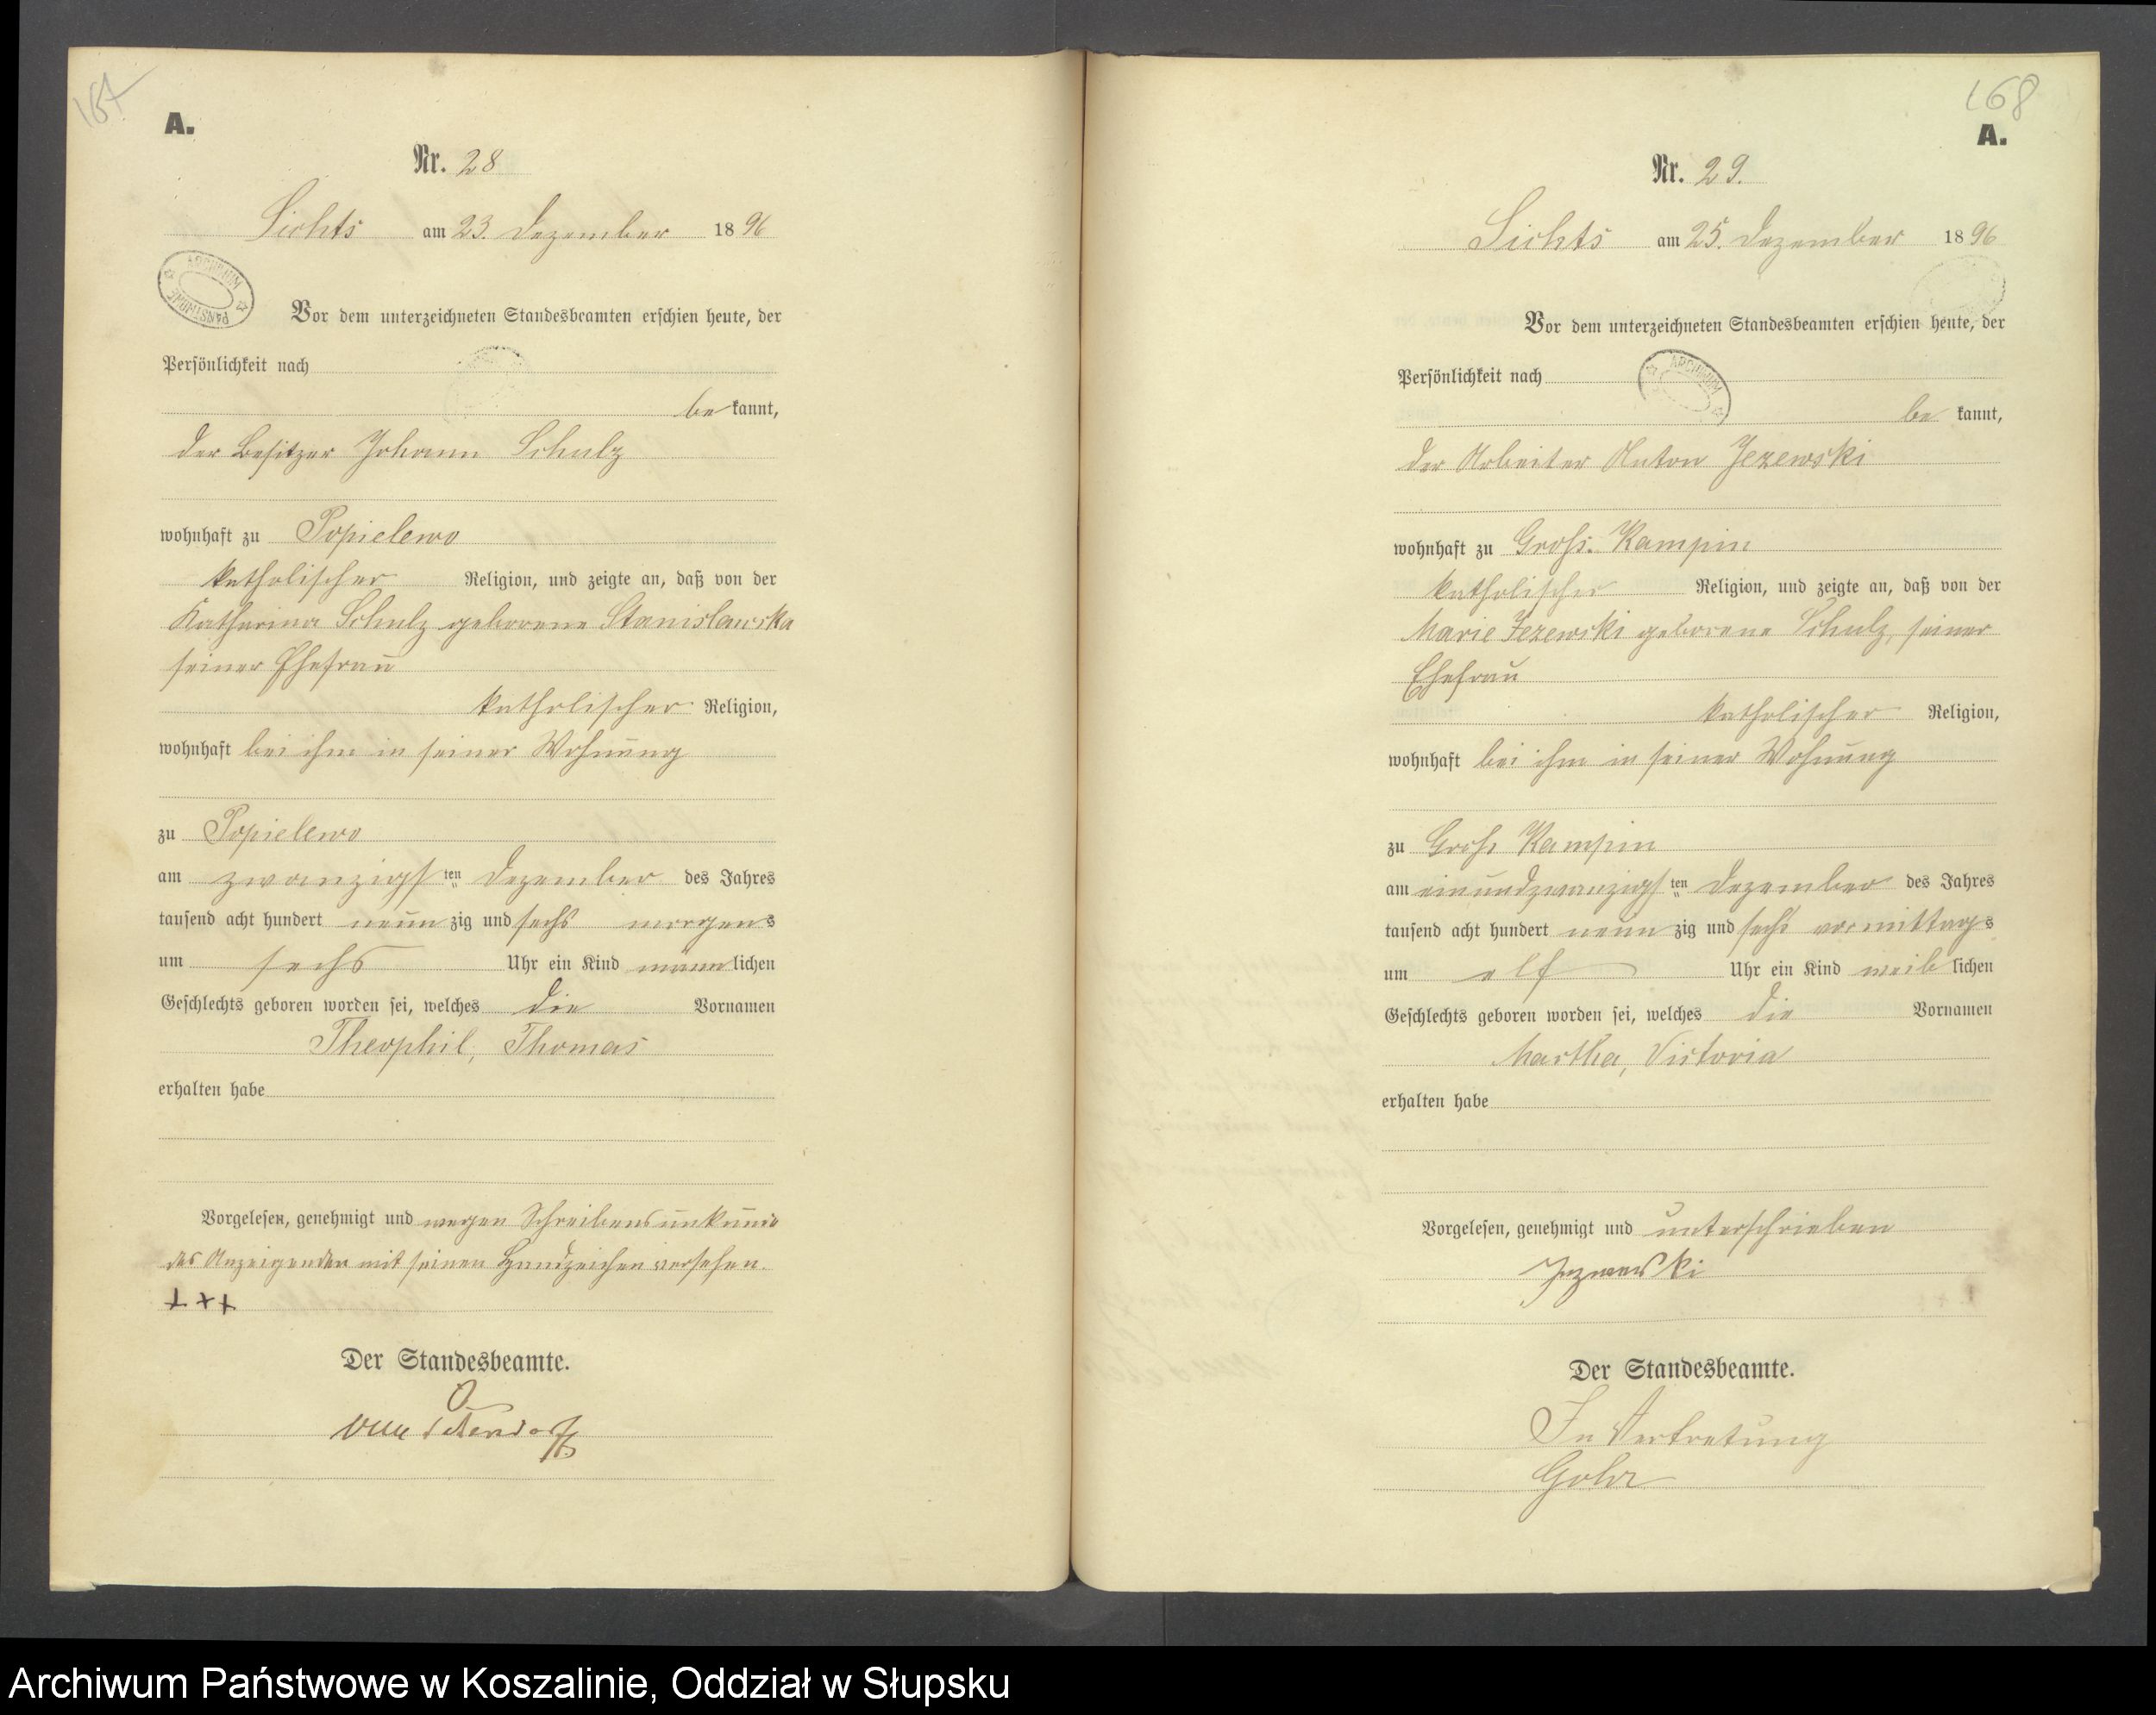 167
A.
Nr. 28
Lichts am 23. Dezember 1896
ARCHIWUM PAŃSTWOWE
Vor dem unterzeichneten Standesbeamten erschien heute, der
Persönlichkeit nach
be kannt,
der Besitzer Johann Schulz
wohnhaft zu Popielewo
katholischer Religion, und zeigte an, daß von der
Katharina Schulz geborene Stanislawska
seiner Ehefrau
katholischer Religion,
wohnhaft bei ihm in seiner Wohnung
zu Popielewo
am zwanzigsten Dezember des Jahres
tausend acht hundert neunzig und sechs morgens
um sechs Uhr ein Kind männlichen
Geschlechts geboren worden sei, welches die Vornamen
Theophil, Thomas
erhalten habe
Vorgelesen, genehmigt und wegen Schreibensunkunde
des Anzeigenden mit seinen Handzeichen versehen.
+++
Der Standesbeamte.
168
A.
Nr. 29.
Lichts am 25. Dezember 1896
Vor dem unterzeichneten Standesbeamten erschien heute, der
Persönlichkeit nach
ARCHIWUM
be kannt,
der Arbeiter Anton Jezewski
wohnhaft zu Groß. Kampin
katholischer Religion, und zeigte an, daß von der
Marie Jezewski geborene Schulz, seiner
Ehefrau
katholischer Religion,
wohnhaft bei ihm in seiner Wohnung
zu Groß Kampin
am einundzwanzigsten Dezember des Jahres
tausend acht hundert neunzig und sechs vormittags
um elf Uhr ein Kind weiblichen
Geschlechts geboren worden sei, welches die Vornamen
Martha, Victoria
erhalten habe
Vorgelesen, genehmigt und unterschrieben
Der Standesbeamte.
In Vertretung
Gohr
Archiwum Państwowe w Koszalinie, Oddział w Słupsku